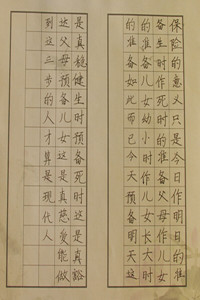 保险的意义只是今日作明日的准
备生时作死时的准备父母作儿女
的准备儿女幼小时作儿女长大时
的准备如此而已今天预备明天这
是真稳健生时预备死时这是真豁
达父母预备儿女这是真慈爱能做
到这三步的人才算是现代人